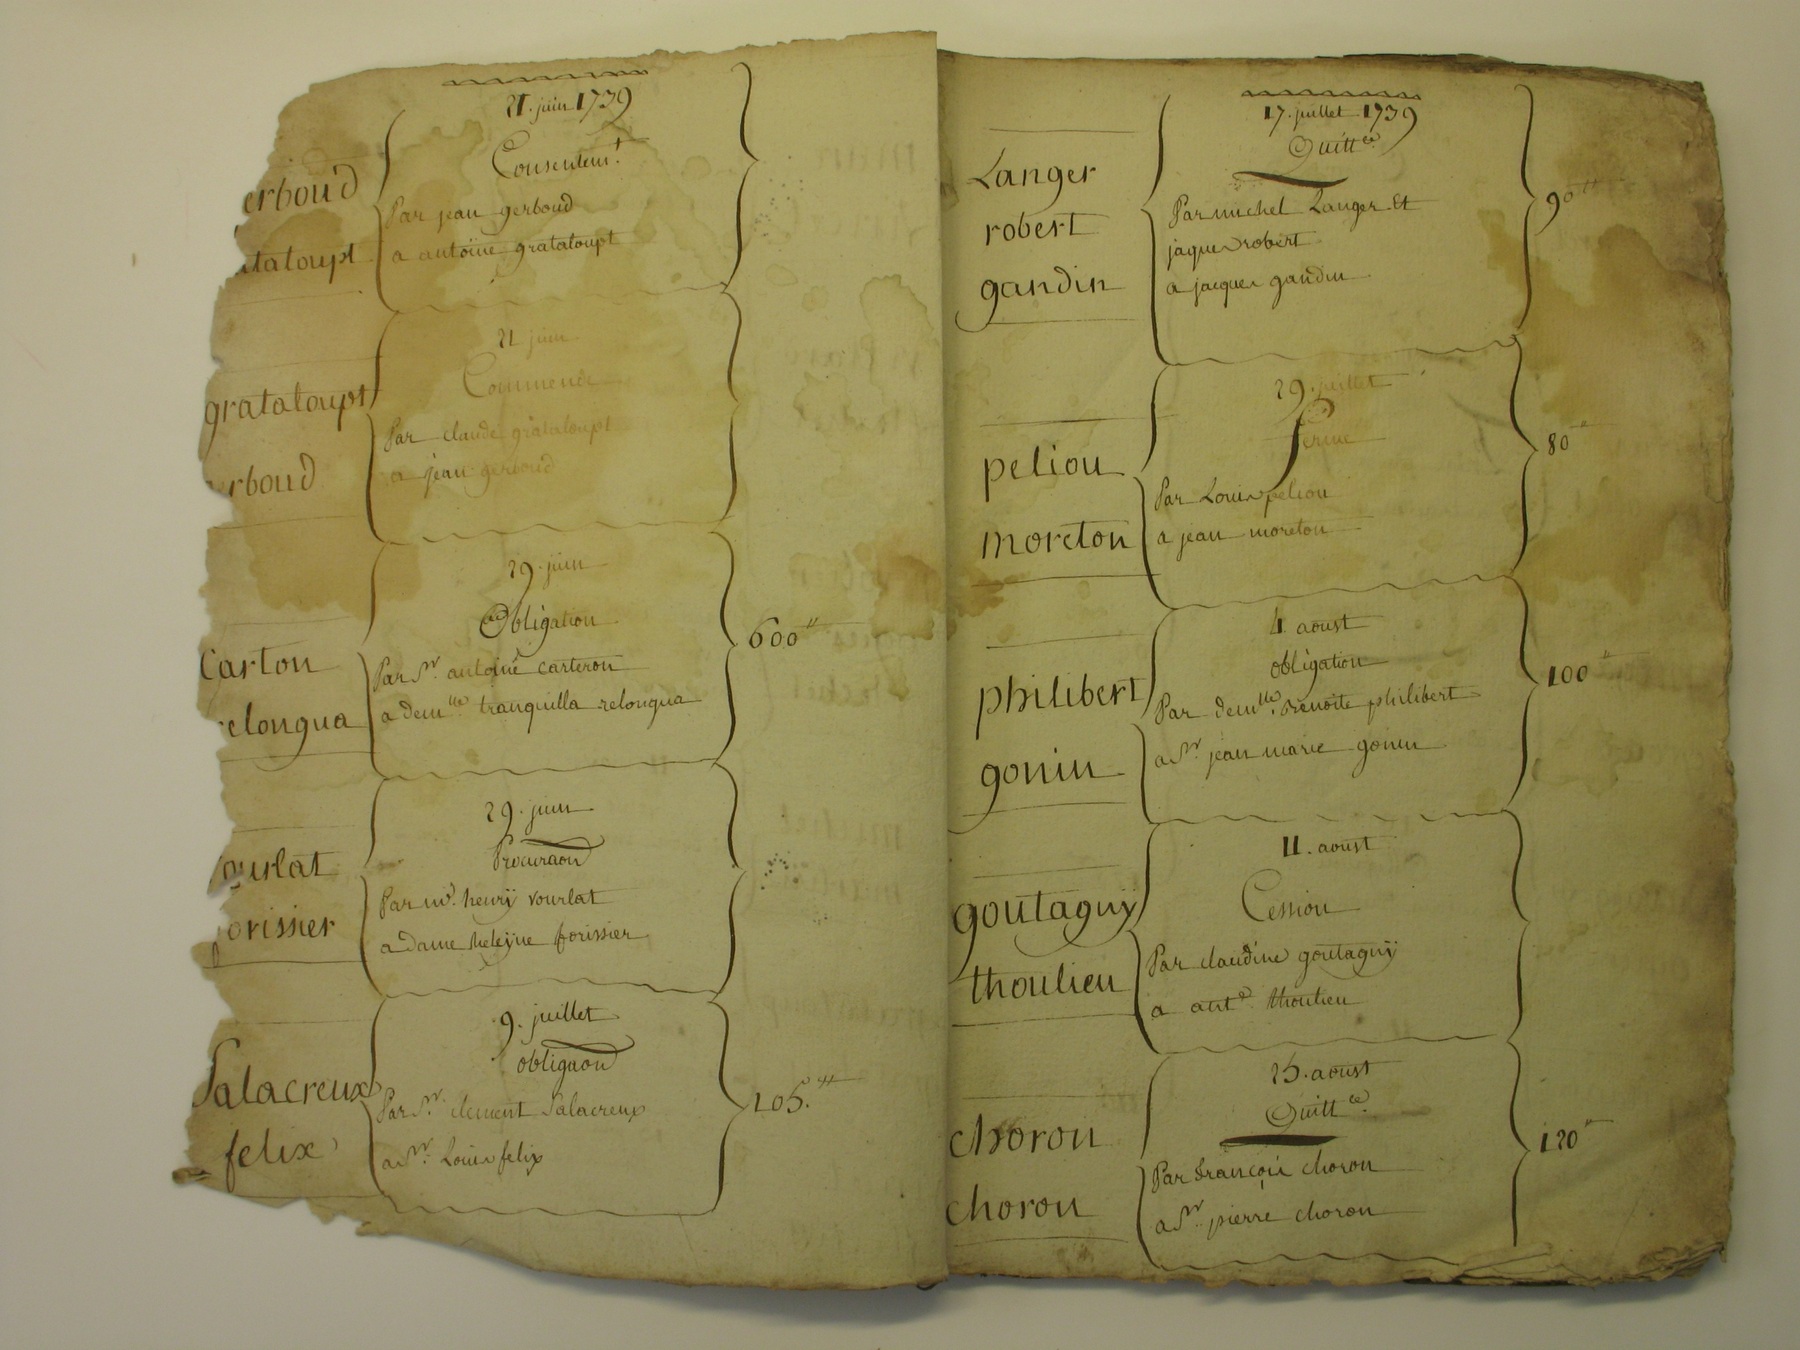 21. juin 1739
Consentemt.
erboud
Par jean gerboud
ataloupt
a antoine grataloupt
21 juin
Commende
grataloupt
Par claude grataloupt
rboud
a jean gerboud
29. juin
Obligation
Carton
Par Sr. antoine carteron
600"
elongua
a demlle tranquilla relongua
29. juin
Procuraon
ourlat
Par mr. henry vourlat
forissier
a dame heleyne forissier
9. juillet
obligaon
Salacreux
Par Sr. clement Salacreux
105.tt
felix
a Sr. Louis felix
17. juillet 1739
Quittce
Langer
Par michel Langer Et
90tt
robert
jaques robert
gandin
a jacques gandin
29. juillet
Ferme
peliou
Par Louis peliou
80"
moreton
a jean moreton
4 aoust
obligation
philibert
Par demlle. Benoite philibert
100"
gonin
a Sr. jean marie gonin
11. aoust
Cession
goutaguy
Par claudine goutaguy
thoulieu
a antd. thoulieu
25. aoust
Quittce.
choron
Par françois choron
120"
choron
a Sr. pierre choron